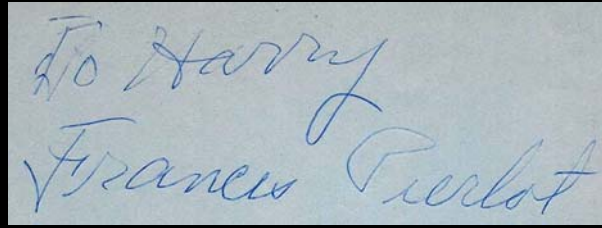 To Harry
Francis Pierlot